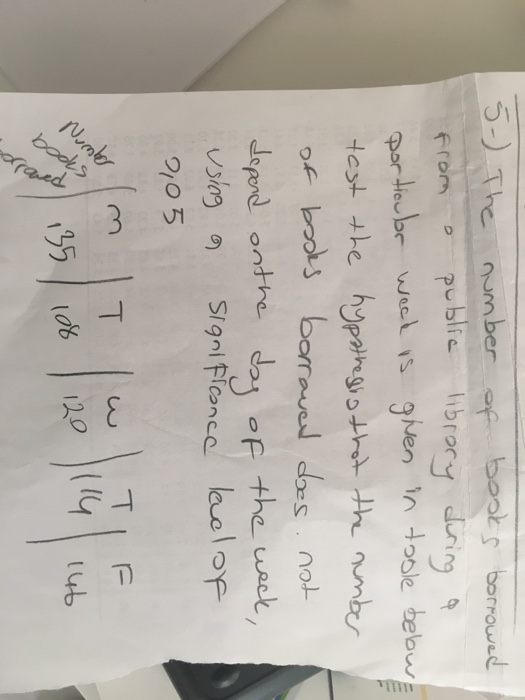 5-) The number of books borrowed
from a public library during a
particular week is given in table below
test the hypothesis that the number
of books borrowed does. not
depend on the day of the week,
using a significance level of
0,05
M | T | W | T | F
135 | 108 | 120 | 114 | 146